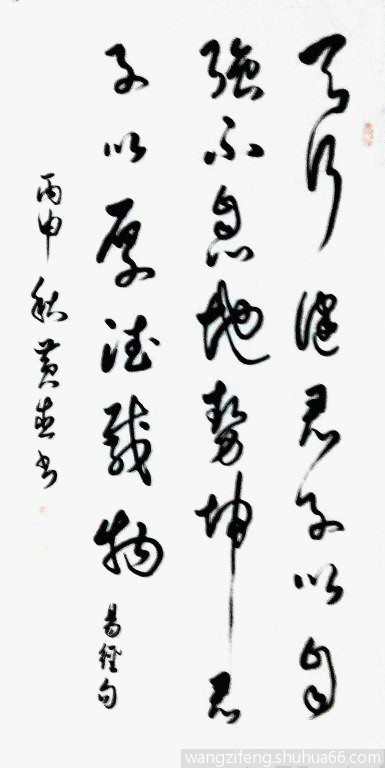 天行健君子以自
強不息地勢坤君
子以厚德載物
易經句
丙申秋黃
書
wangzifeng.shuhua66.com